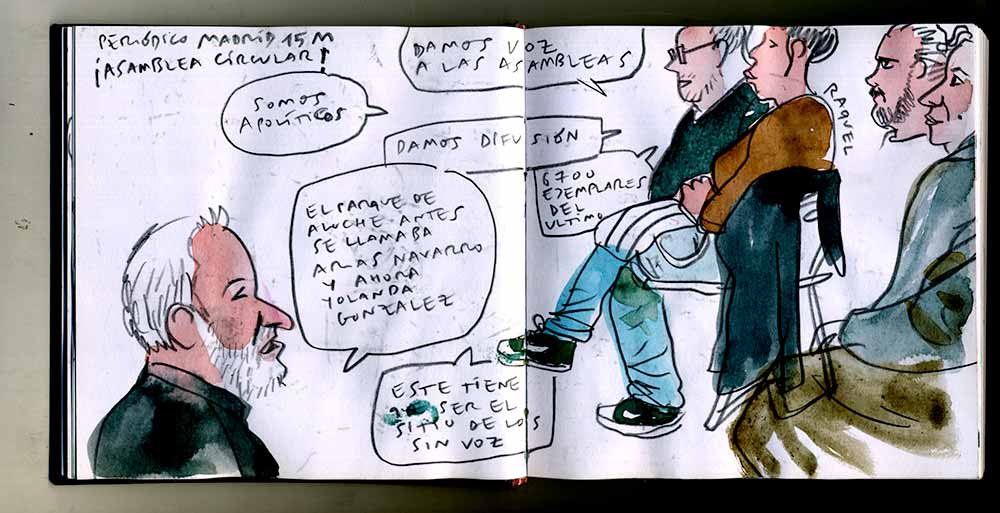 PERIÓDICO MADRID 15M
¡ASAMBLEA CIRCULAR!
SOMOS
APOLÍTICOS
DAMOS VOZ
A LAS ASAMBLEAS
DAMOS DIFUSIÓN
6700
EJEMPLARES
DEL
ULTIMO
RAQUEL
EL PARQUE DE
ALUCHE ANTES
SE LLAMABA
ARIAS NAVARRO
Y AHORA
YOLANDA
GONZALEZ
ESTE TIENE
SER EL
SITIO DE LOS
SIN VOZ